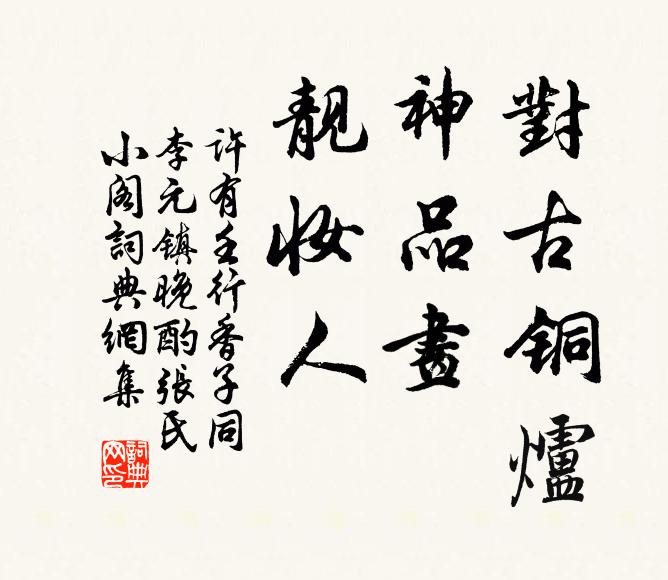 對古銅爐
神品畫
靚妝人
許有壬行香子同
李元鎮晚酌張氏
小阁詞典網集
詞典
网印